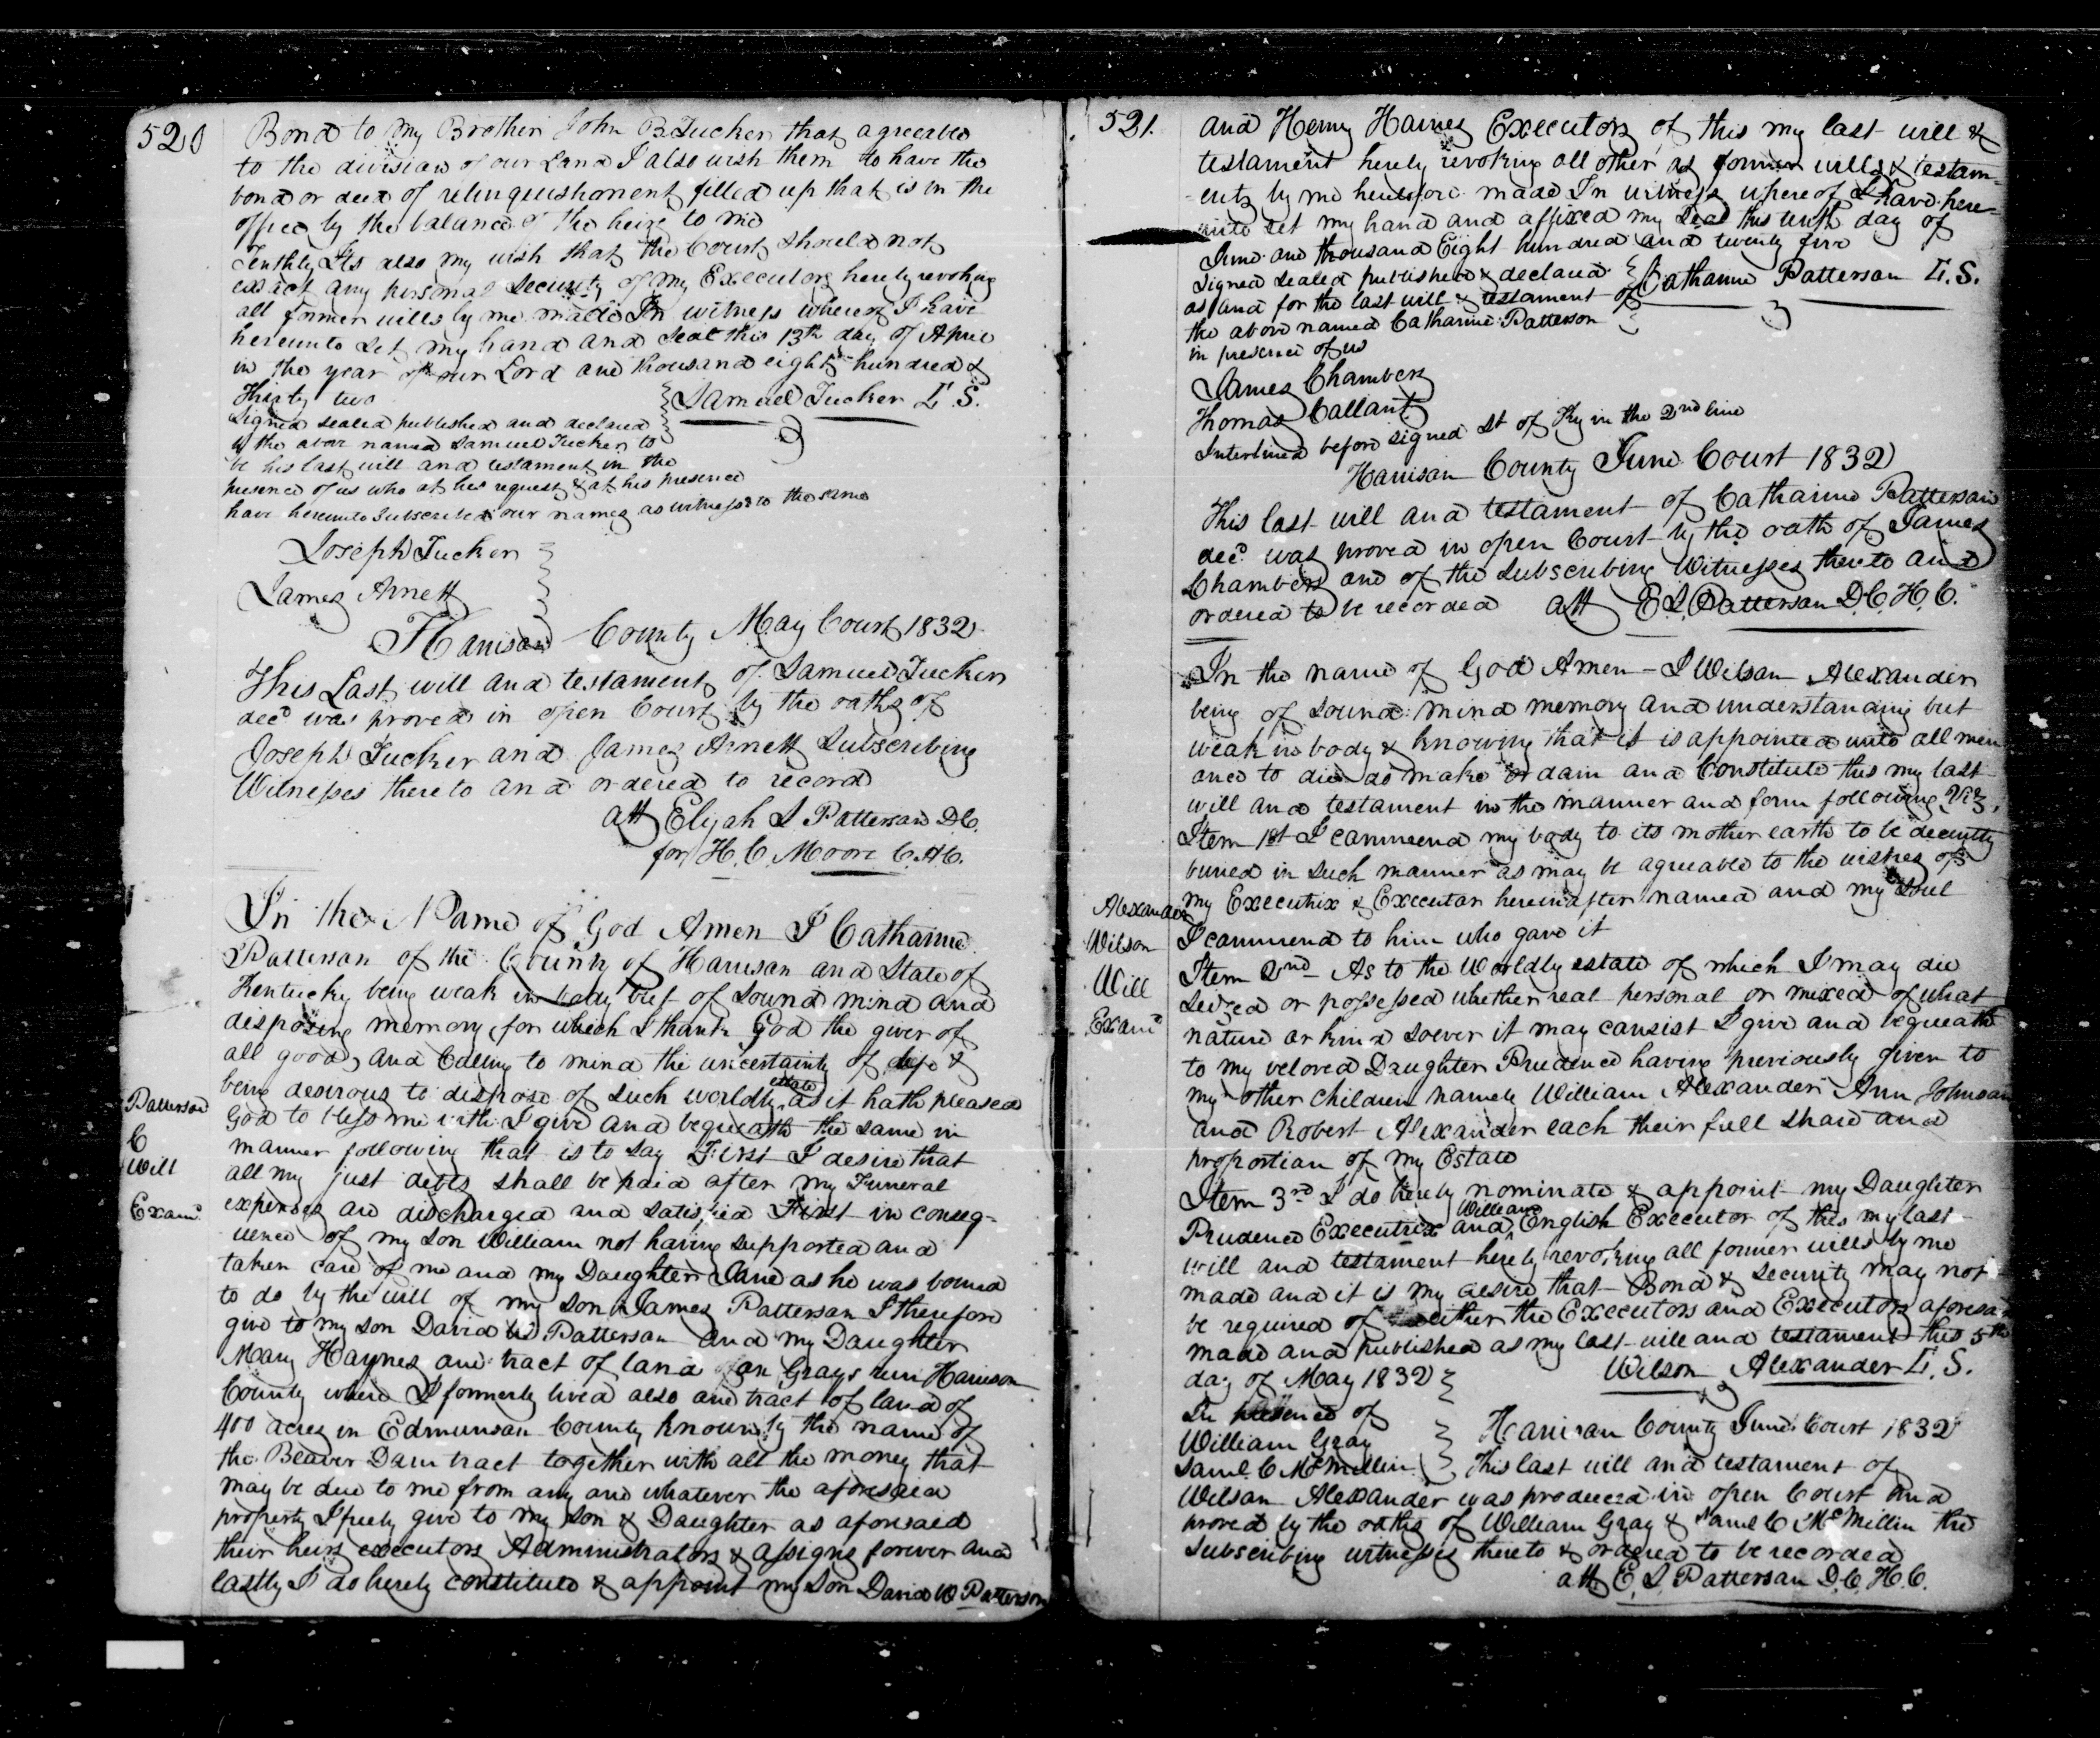 520
Bond to my Brother John B Tucker that agreeable
to the division of our Land I also wish them to have the
bond or deed of relinquishment filled up that is in the
office by the balance of the heirs to me
Tenthly Its also my wish that the Court should not
exact any personal Security of my Executors hereby revoking
all former wills by me made In witness whereof I have
hereunto Set my hand and Seal this 13th day of April
in the year of our Lord one thousand eight hundred &
Thirty two
Samuel Tucker L. S.
Signed sealed published and declared
by the above named Samuel Tucker to
be his last will and testament in the
presence of us who at his request & at his presence
have hereunto Subscribed our names as witnesses to the same
Joseph Tucker
James Arnett
Harrison County May Court 1832
This Last will and testament of Samuel Tucker
decd was proved in open Court by the oaths of
Joseph Tucker and James Arnett Subscribing
Witnesses thereto and ordered to record
att Elijah S Patterson D.C.
for H. C. Moore C.H.C.
Patterson
C
Will
Examd
In the Name of God Amen I Catharine
Patterson of the County of Harrison and State of
Kentucky being weak in body but of sound mind and
disposing memory for which I thank God the giver of
all good, and Calling to mind the uncertainty of life &
being desirous to dispose of Such worldly estate as it hath pleased
God to bless me with I give and bequeath the same in
manner following that is to say First I desire that
all my just debts shall be paid after my Funeral
expenses are discharged and satisfied First in conseq-
uence of my son William not having supported and
taken care of me and my Daughter Jane as he was bound
to do by the will of my son James Patterson I therefore
give to my son David W Patterson and my Daughter
Mary Haynes one tract of land on Grays run Harrison
County where I formerly lived also one tract of land of
400 acres in Edmunson County known by the name of
the Beaver Dam tract together with all the money that
may be due to me from any one whatever the aforesaid
property I freely give to my Son & Daughter as aforesaid
their heirs executors Administrators & assigns forever and
lastly I do hereby constitute & appoint my Son David W Patterson
521.
and Henry Haines Executors of this my last will &
testament hereby revoking all other as former wills & testam-
-ents by me heretofore made In witness whereof I have here-
unto set my hand and affixed my Seal this day of
June one thousand Eight hundred and twenty five
Signed sealed published & declared
as and for the last will & testament of
the above named Catharine Patterson
in presence of us
Catharine Patterson L. S.
James Chambers
Thomas Callant
Interlined before signed St of Ky in the 2nd line
Harrison County June Court 1832
This last will and testament of Catharine Patterson
decd was proved in open Court by the oath of James
Chambers one of the Subscribing Witnesses thereto and
ordered to be recorded att E. S. Patterson D.C.H.C.
Alexander
Wilson
Will
Examd
In the name of God Amen - I Wilson Alexander
being of sound mind memory and understanding but
weak in body & knowing that it is appointed unto all men
once to die do make ordain and Constitute this my last
will and testament in the manner and form following Viz,
Item 1st I commend my body to its mother earth to be decently
buried in such manner as may be agreeable to the wishes of
my Executrix & Executor hereinafter named and my Soul
I commend to him who gave it
Item 2nd As to the Worldly estate of which I may die
Seized or possessed whether real personal or mixed of what
nature or kind soever it may consist I give and bequeath
to my beloved Daughter Prudence having previously given to
my other children namely William Alexander Ann Johnson
and Robert Alexander each their full share and
proportion of my Estate
Item 3rd I do hereby nominate & appoint my Daughter
Prudence Executrix and William English Executor of this my last
will and testament hereby revoking all former wills by me
made and it is my desire that Bond & security may not
be required of either the Executors and Executors aforesa
made and published as my last will and testament this 5th
day of May 1832
Wilson Alexander L. S.
In presence of
William Gray
Saml. C McMillin
Harrison County June Court 1832
This last will and testament of
Wilson Alexander was produced in open Court and
proved by the oaths of William Gray & Saml C McMillin the
subscribing witnesses thereto & ordered to be recorded
att E. S. Patterson D.C.H.C.